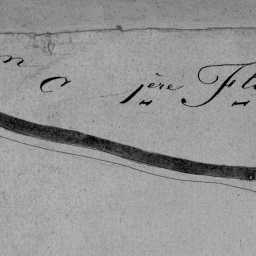 n C 1ère Fl